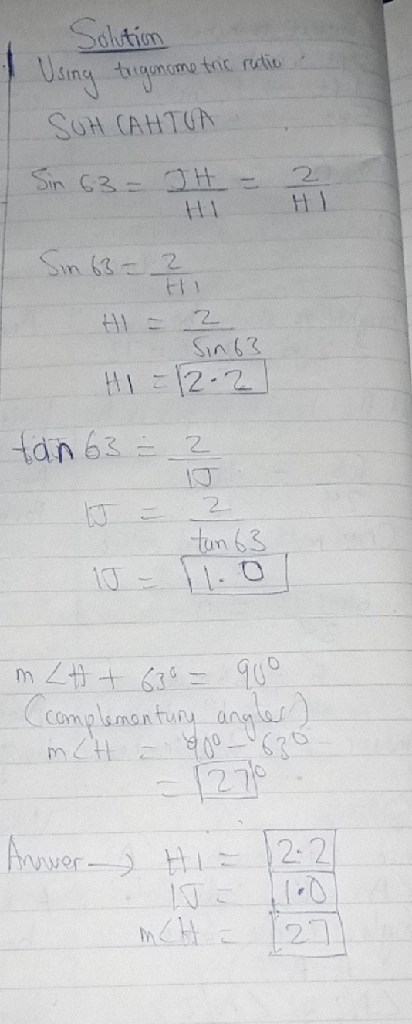 Solution
Using trigonometric ratio
SOH CAHTOA
Sin 63 = JH / HI = 2 / HI
Sin 63 = 2 / HI
HI = 2 / Sin63
HI = 2.2
tan 63 = 2 / IJ
IJ = 2 / tan63
IJ = 1.0
m∠H + 63° = 90°
(complementary angles)
m∠H = 90° - 63°
= 27°
Answer → HI = 2.2
IJ = 1.0
m∠H = 27